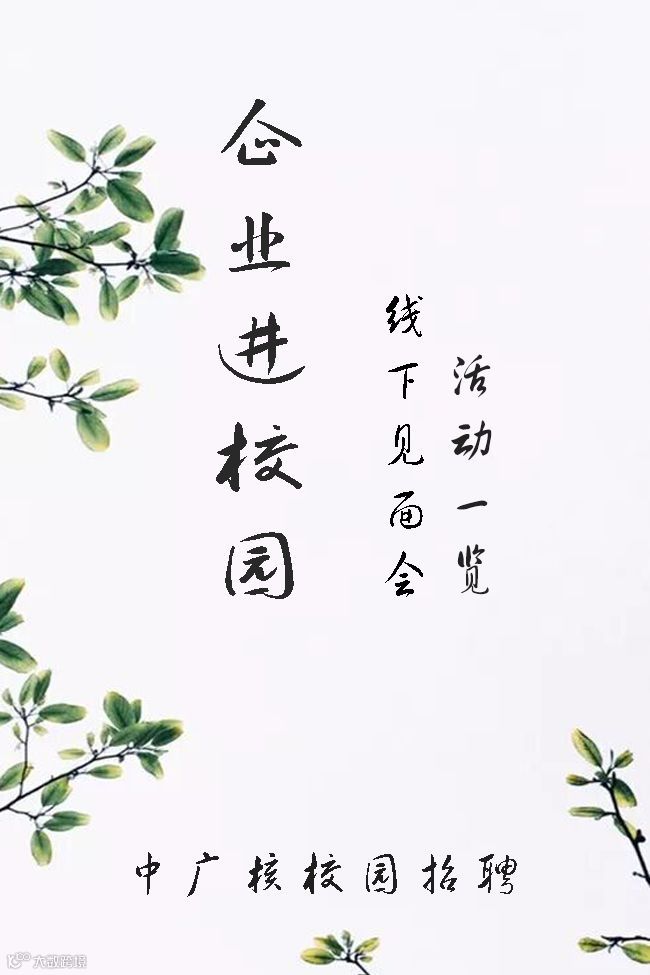 企业进校园
线下见面会
活动一览
中广核校园招聘
大数跨境